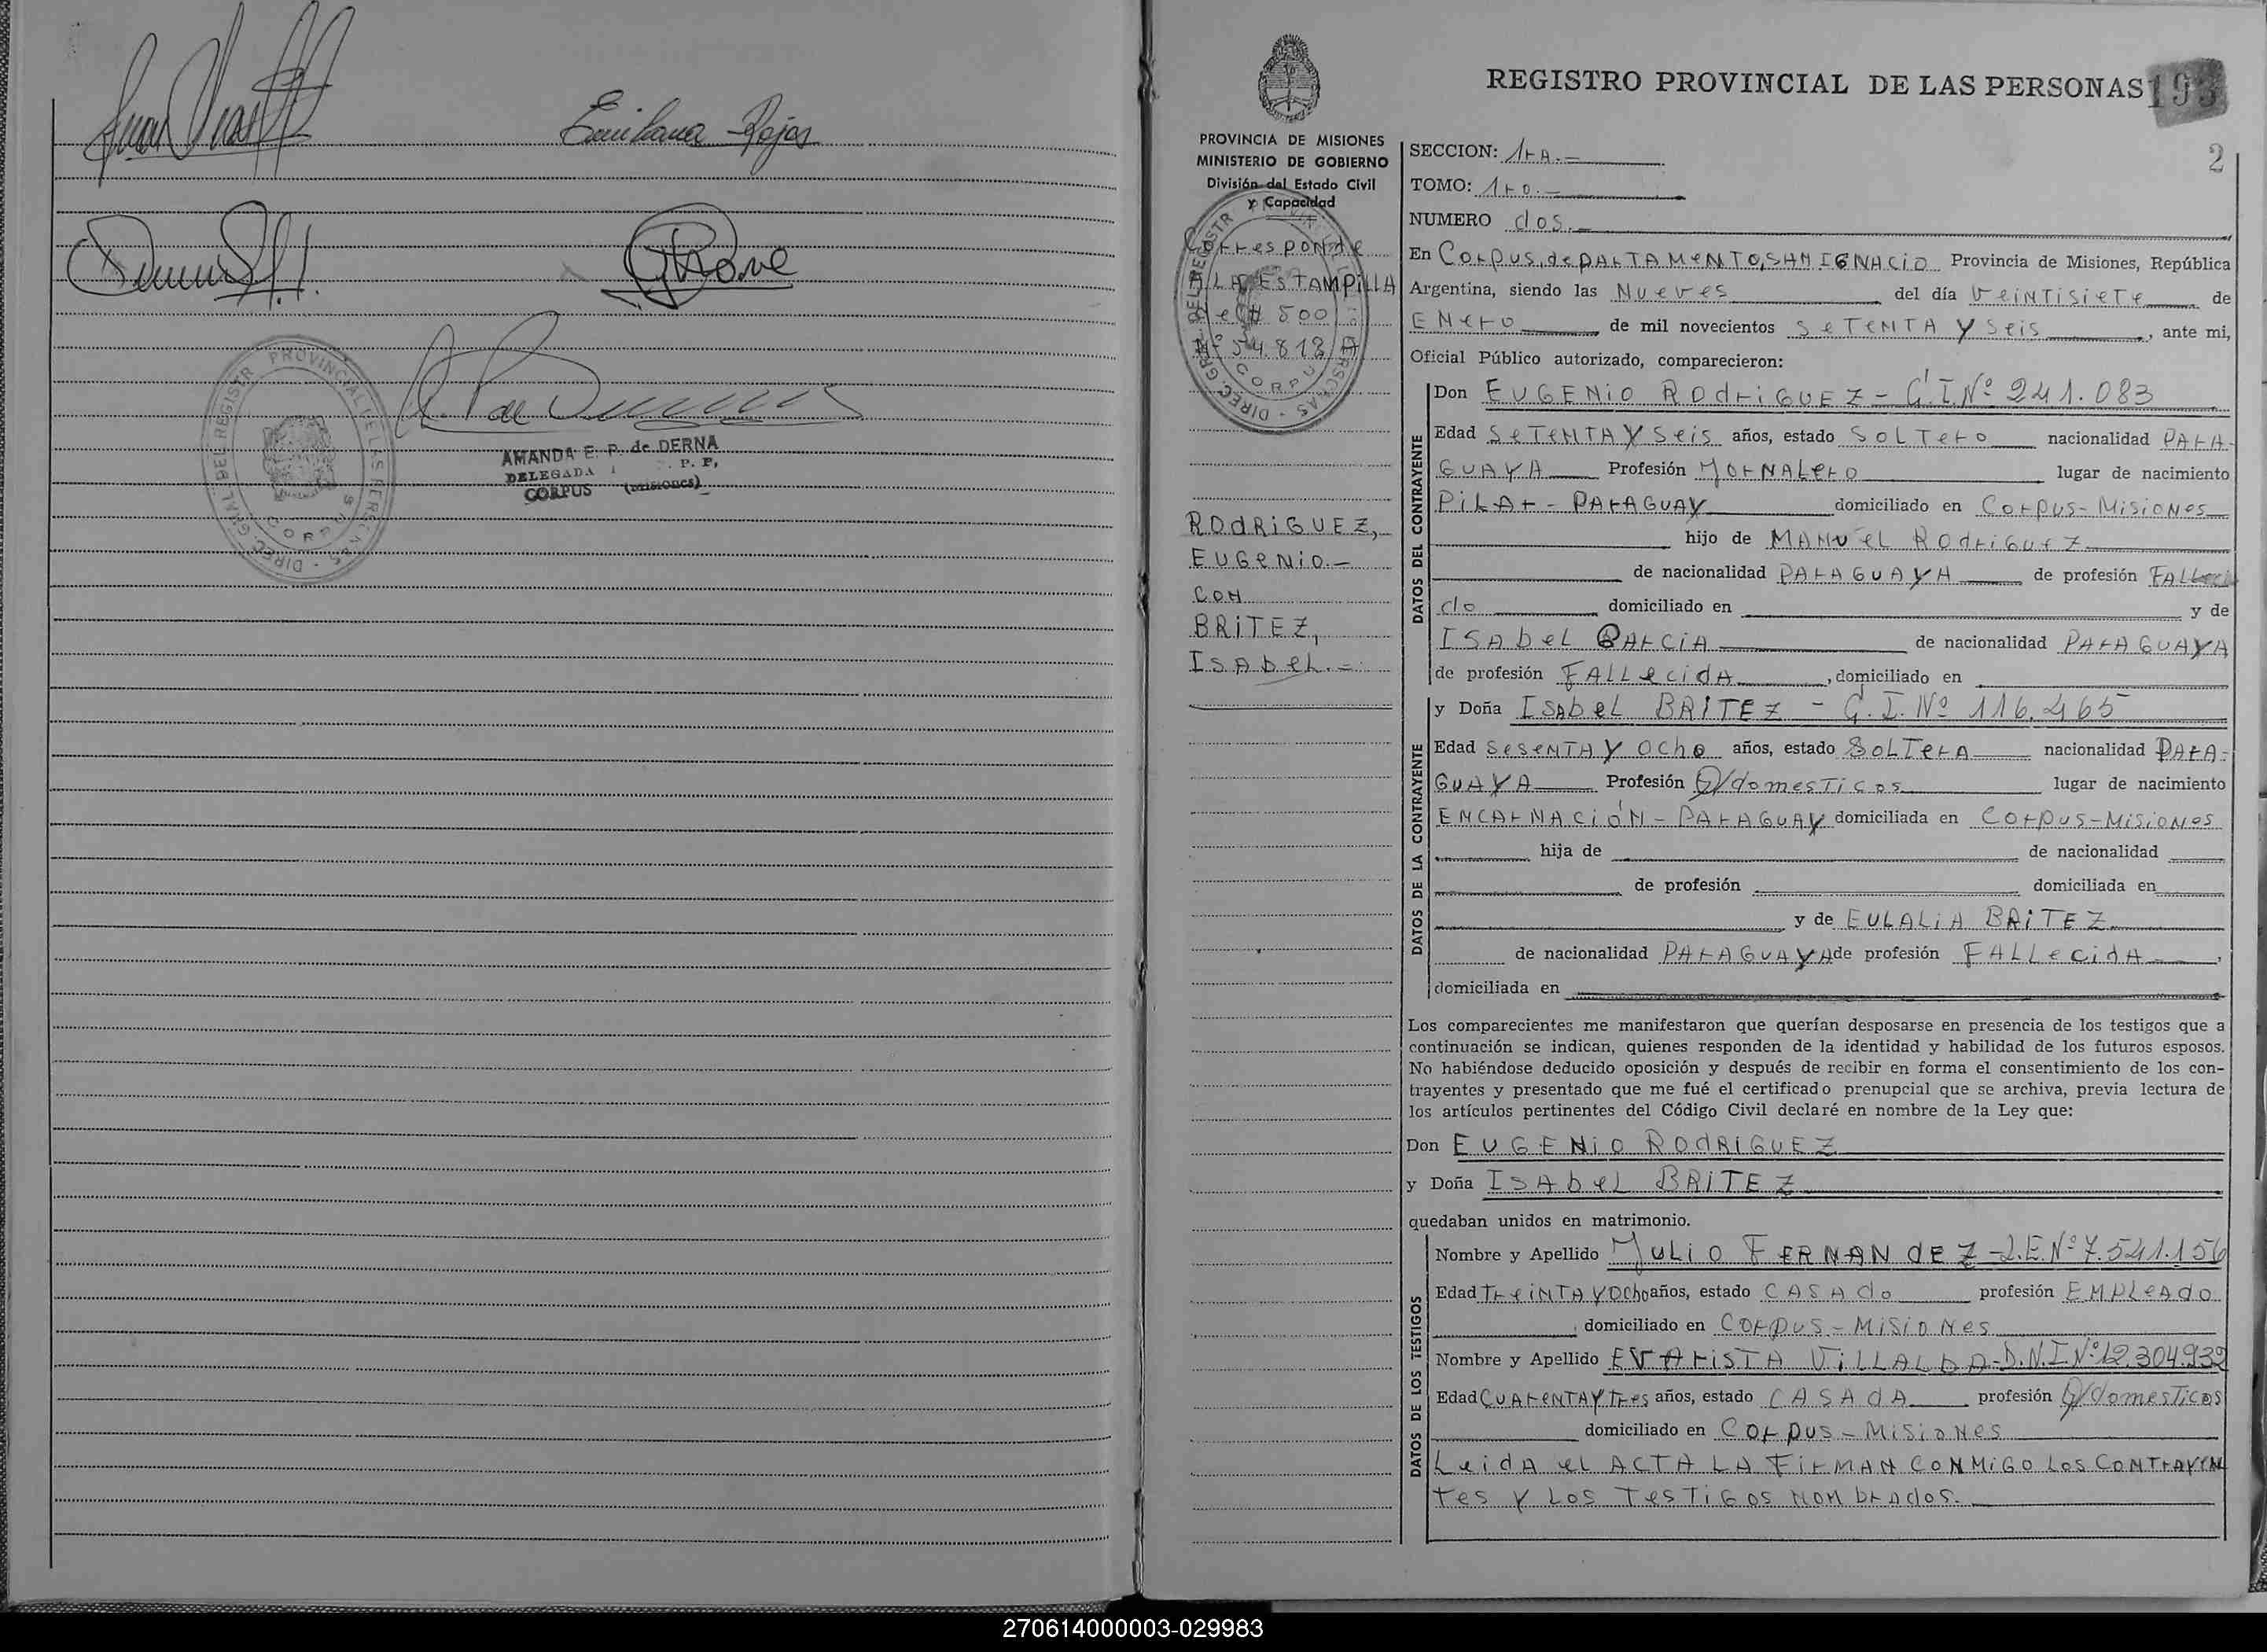 Emiliana Rojas
AMANDA E. P. de DERNA
DELEGADA
CORPUS (Misiones)
REGISTRO PROVINCIAL DE LAS PERSONAS 193
2
PROVINCIA DE MISIONES
MINISTERIO DE GOBIERNO
División del Estado Civil
y Capacidad
Corresponde
A LA ESTAMPILLA
de $ 500
Nº 54.818/A
RODRIGUEZ,
EUGENIO.-
CON
BRITEZ,
ISABEL.-
SECCION: 1rA.-
TOMO: 1ro.-
NUMERO dos.-
En Corpus, dePARTAMENTO, SAN IGNACIO Provincia de Misiones, República
Argentina, siendo las Nueves del día VeiNTiSieTe de
ENero de mil novecientos SeTENTA y Seis, ante mi,
Oficial Público autorizado, comparecieron:
DATOS DEL CONTRAYENTE
Don EUGENIO RODriGUEZ - C.I.Nº 241.083
Edad SeTENTA y Seis años, estado SOLTERO nacionalidad PARA-
GUAYA Profesión JORNALERO lugar de nacimiento
PILAR - PARAGUAY domiciliado en Corpus-MisioNes
hijo de MANUEL RODriGUEZ
de nacionalidad PARAGUAYA de profesión FALLeci
do domiciliado en y de
ISAbeL GARCIA de nacionalidad PARAGUAYA
de profesión FALLecidA, domiciliado en
DATOS DE LA CONTRAYENTE
y Doña ISAbeL BRITEZ - C.I. Nº 116.465
Edad SeSeNTA y Ocho años, estado SOLTerA nacionalidad PARA-
GUAYA Profesión Q/domesTicos lugar de nacimiento
ENCARNACIÓN - PARAGUAY domiciliada en Corpus-MisioNes
hija de de nacionalidad
de profesión domiciliada en
y de EULALIA BRITEZ
de nacionalidad PARAGUAYA de profesión FALLecidA,
domiciliada en
Los comparecientes me manifestaron que querían desposarse en presencia de los testigos que a
continuación se indican, quienes responden de la identidad y habilidad de los futuros esposos.
No habiéndose deducido oposición y después de recibir en forma el consentimiento de los con-
trayentes y presentado que me fué el certificado prenupcial que se archiva, previa lectura de
los artículos pertinentes del Código Civil declaré en nombre de la Ley que:
Don EUGENIO RODRIGUEZ
y Doña ISAbeL BRITEZ
quedaban unidos en matrimonio.
DATOS DE LOS TESTIGOS
Nombre y Apellido JULIO FERNANdEZ -L.E.Nº 7.541.156
Edad TreiNTA y Ocho años, estado CASAdo profesión EMPLeAdo
domiciliado en Corpus - MisioNes
Nombre y Apellido EVAriSTA VILLALBA-D.N.I Nº 12.304.932
Edad CUAreNTA y Tres años, estado CASAdA profesión Q/domesTicos
domiciliado en Corpus - MisioNes
LeidA el ACTA LA FirMAN CONMIGO Los CONTrAyeN
Tes y Los TesTiGos NoMbrAdos.
270614000003-029983